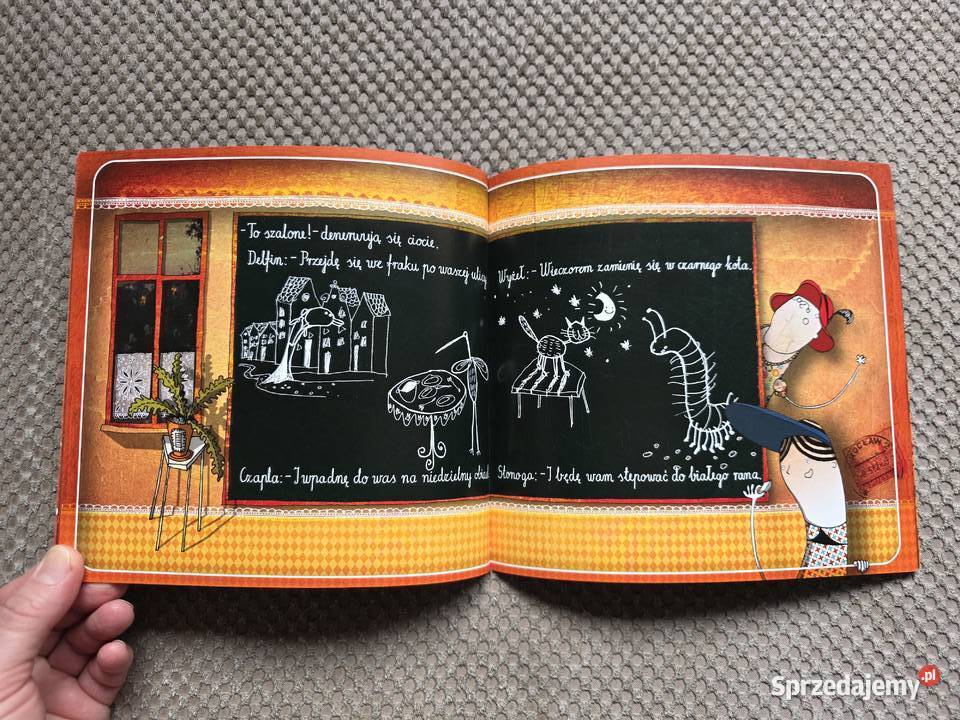 -To szalone!- denerwują się ciocie.
Delfin: - Przejdę się we fraku po waszej ulicy.
Czapla: - I wpadnę do was na niedzielny obiad.
Wyżeł: - Wieczorem zamienię się w czarnego kota.
Stonoga: - I będę wam stepować do białego rana.
Sprzedajemy.pl